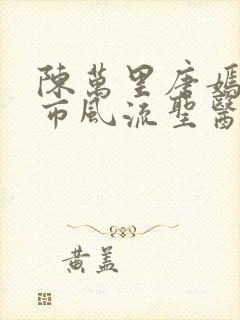 陳萬里唐嫣
市風流聖醫
黃蓋